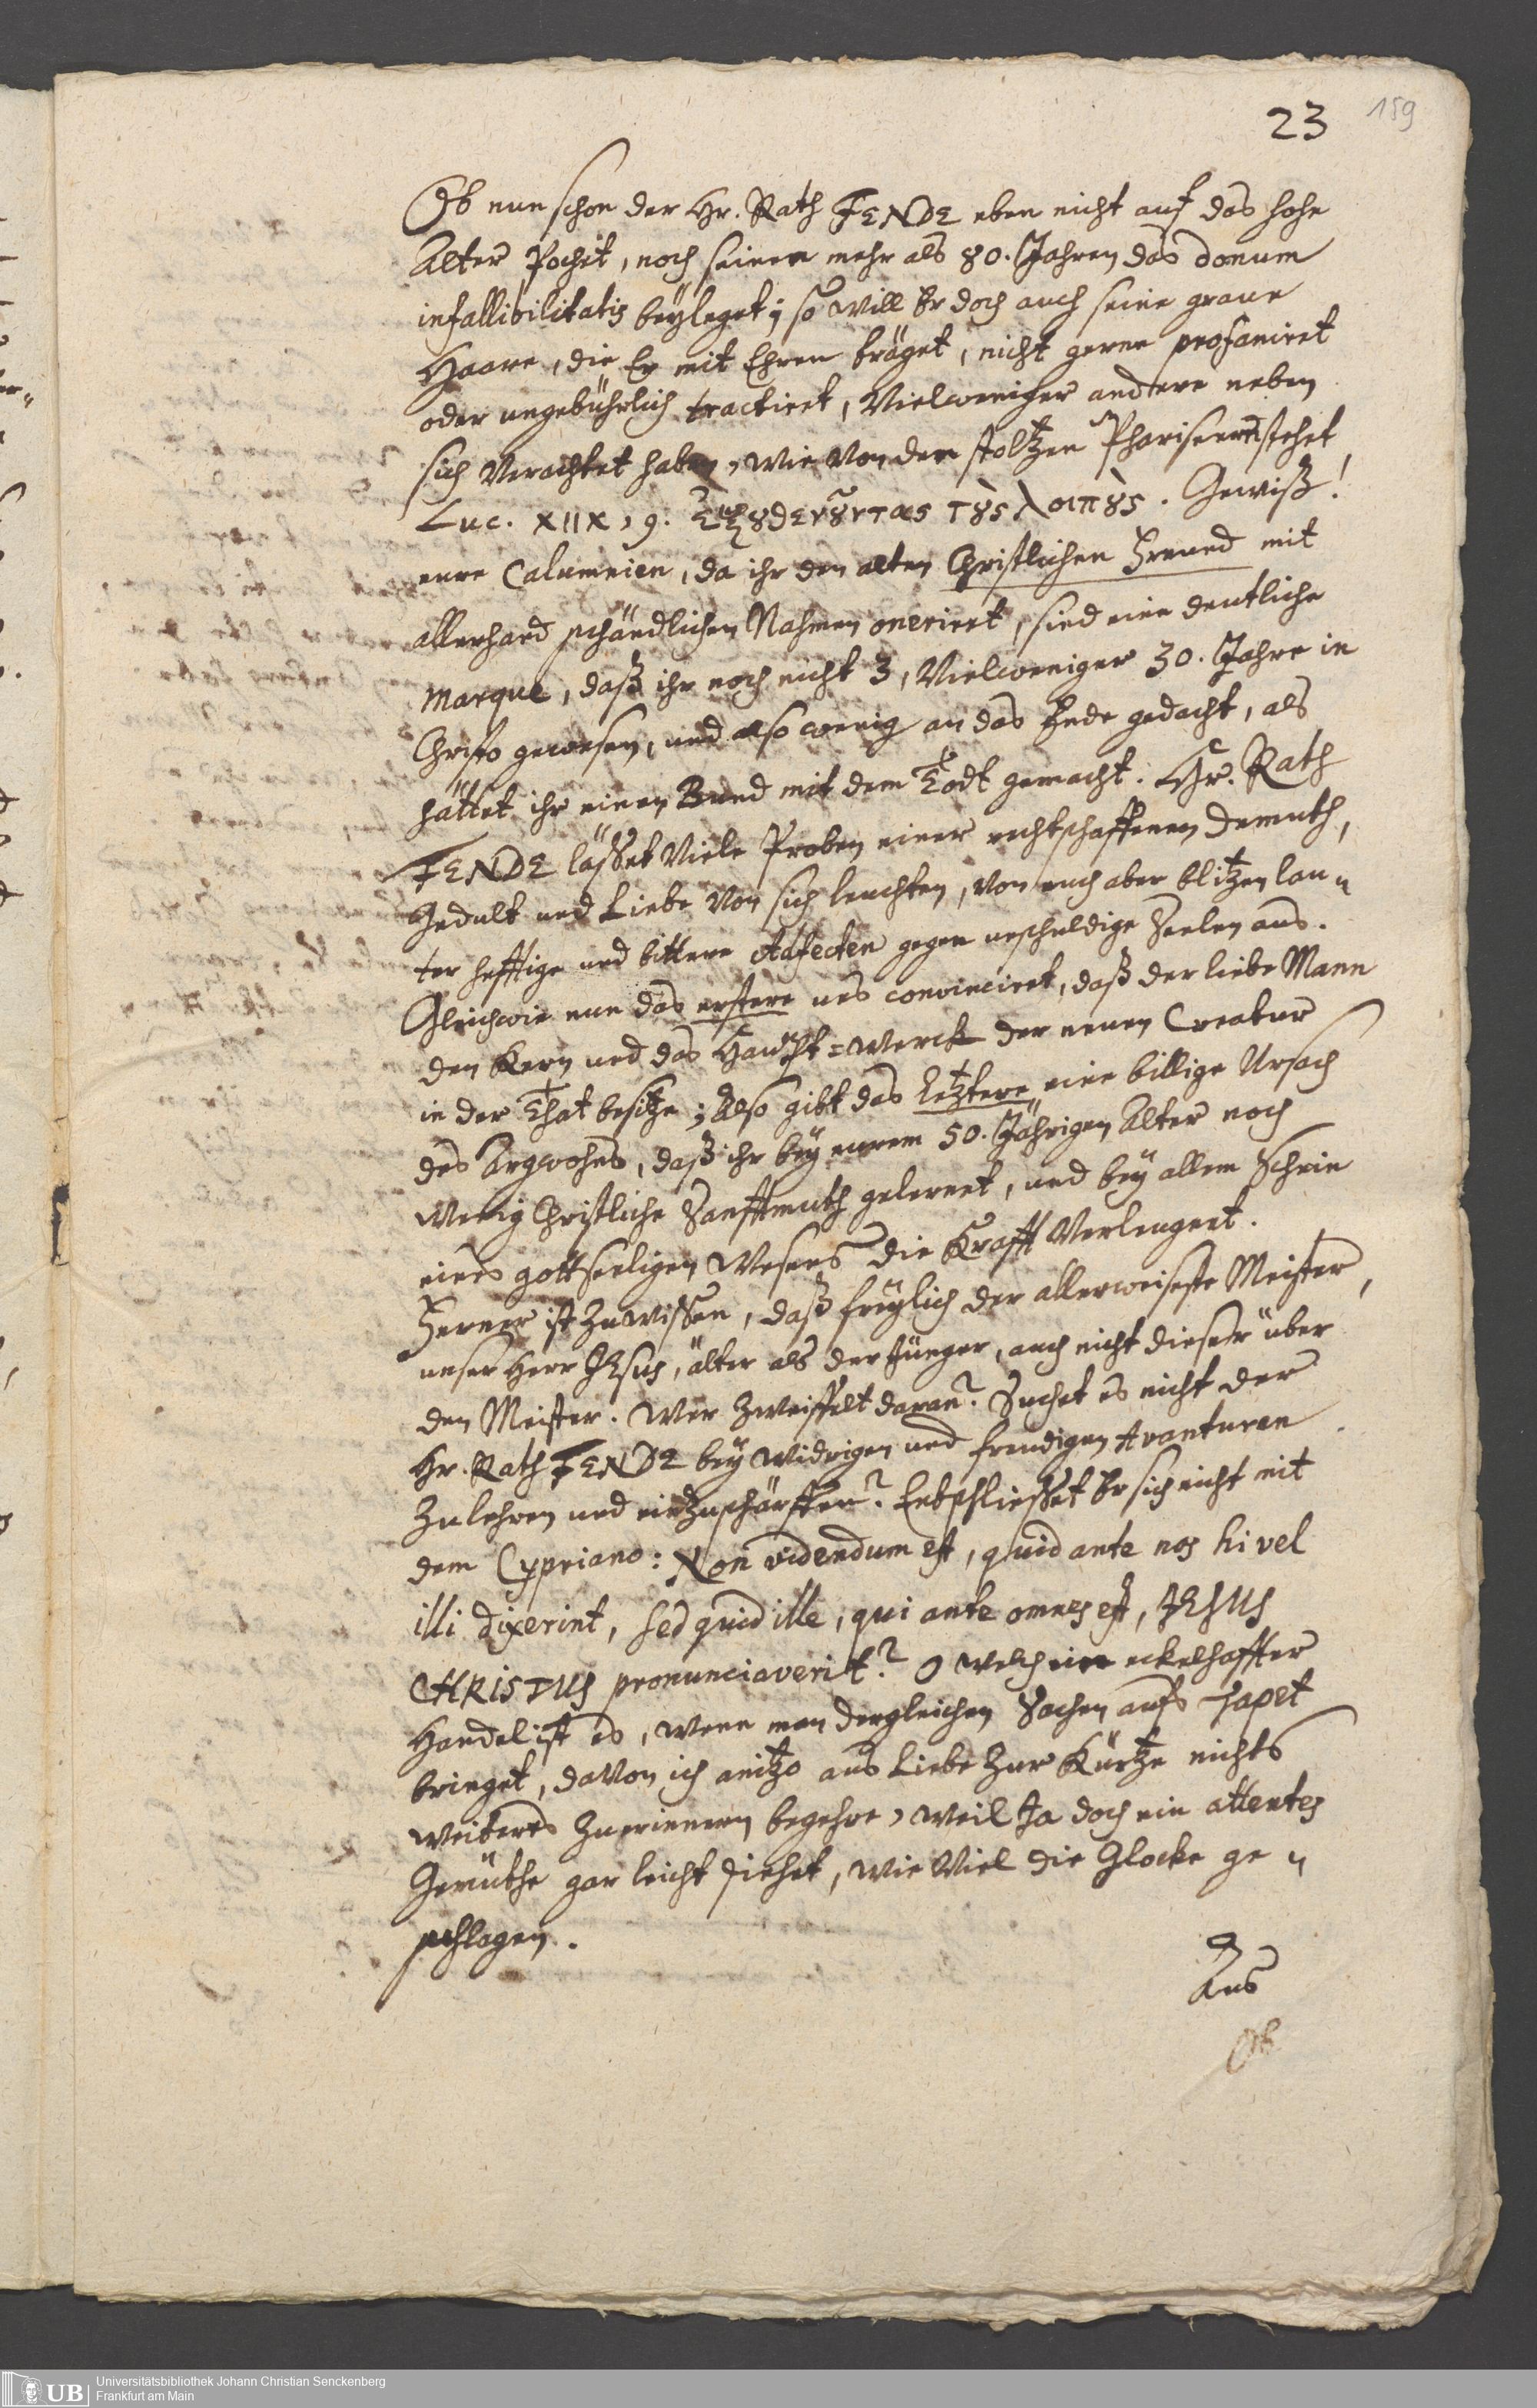 23
159
Ob nun schon der Hr. Rath FENDE eben nicht auf das hohe
Alter Pochet, noch seinen mehr als 80. Jahren das donum
infallibilitatis beÿleget; so will Er doch auch seine graue
Haare, die Er mit Ehren träget, nicht gerne profaniret
oder ungebührlich tractiret, Vielweniger andere neben
sich Verachtet haben, wie Von den stoltzen Phariseern stehet
Luc. XIIX, 9. ἐξȣδενȣ͂ντας τȣ̀ς λοιπȣ̀ς. Gewiß!
eure Calumnien, da ihr den alten Christlichen Freund mit
allerhand schändlichen Nahmen oneriret, sind eine deutliche
marque, daß ihr noch nicht 3, Vielweniger 30. Jahre in
Christo gewesen, und also wenig an das Ende gedacht, als
hättet ihr einen Bund mit dem Todt gemacht. Hr. Rath
FENDE lässet Viele Proben einer rechtschaffenen Demuth,
Gedult und Liebe Von sich leuchten, Von euch aber blitzen lau-
ter hefftige und bittere Adfecten gegen unschuldige Seelen aus.
Gleichwie nun das erstere uns convinciret, daß der liebe Mann
den Kern und das Haupt-Werck der neuen Creatur
in der That besitze; Also gibt das letztere eine billige Ursach
des Argwohns, daß ihr beÿ eurem 50. Jährigen Alter noch
Wenig Christliche Sanfftmuth gelernet, und beÿ allem Schein
eines gottseeligen Wesens die Krafft Verleugnet.
Ferner ist zu wissen, daß freÿlich der allerweiseste Meister,
unser Herr JEsus, älter als der Jünger, auch nicht dieser über
den Meister. Wer zweiffelt daran? Suchet es nicht der
Hr. Rath FENDE beÿ widrigen und freudigen Avanturen
zu lehren und einzuschärffen? Entschliesset Er sich nicht mit
dem Cypriano: Non videndum est, quid ante nos hi vel
illi dixerint, sed quid ille, qui ante omnes est, JESUS
CHRISTUS pronunciaverit? O welch ein eckelhaffter
Handel ist es, wenn man dergleichen Sachen aufs Tapet
bringet, daVon ich anitzo aus Liebe zur Kürtze nichts
weiters zuerinnern begehre, weil Ja doch ein attentes
Gemüthe gar leicht siehet, wie Viel die Glocke ge-
schlagen.
Aus
Ob
UB Universitätsbibliothek Johann Christian Senckenberg
Frankfurt am Main